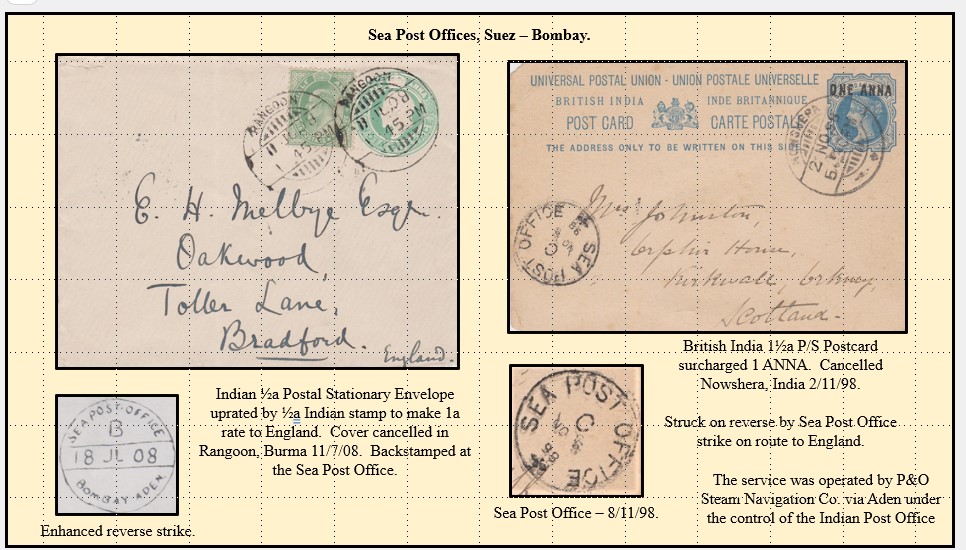 Sea Post Offices, Suez – Bombay.
RANGOON
45 PM
RANGOON
45 PM
E. H. Melbye Esqr.
Oakwood,
Toller Lane,
Bradford.
England.
UNIVERSAL POSTAL UNION - UNION POSTALE UNIVERSELLE
BRITISH INDIA INDE BRITANNIQUE
POST CARD CARTE POSTALE
THE ADDRESS ONLY TO BE WRITTEN ON THIS SIDE
ONE ANNA
SEA POST OFFICE
C
Johnston,
Orphir House,
Kirkwall, Orkney,
Scotland.
SEA POST·OFFICE
B
18 JL 08
BOMBAY-ADEN
Enhanced reverse strike.
Indian ½a Postal Stationary Envelope
uprated by ½a Indian stamp to make 1a
rate to England. Cover cancelled in
Rangoon, Burma 11/7/08. Backstamped at
the Sea Post Office.
SEA POST OFFICE
C
Sea Post Office – 8/11/98.
British India 1½a P/S Postcard
surcharged 1 ANNA. Cancelled
Nowshera, India 2/11/98.
Struck on reverse by Sea Post Office
strike on route to England.
The service was operated by P&O
Steam Navigation Co. via Aden under
the control of the Indian Post Office